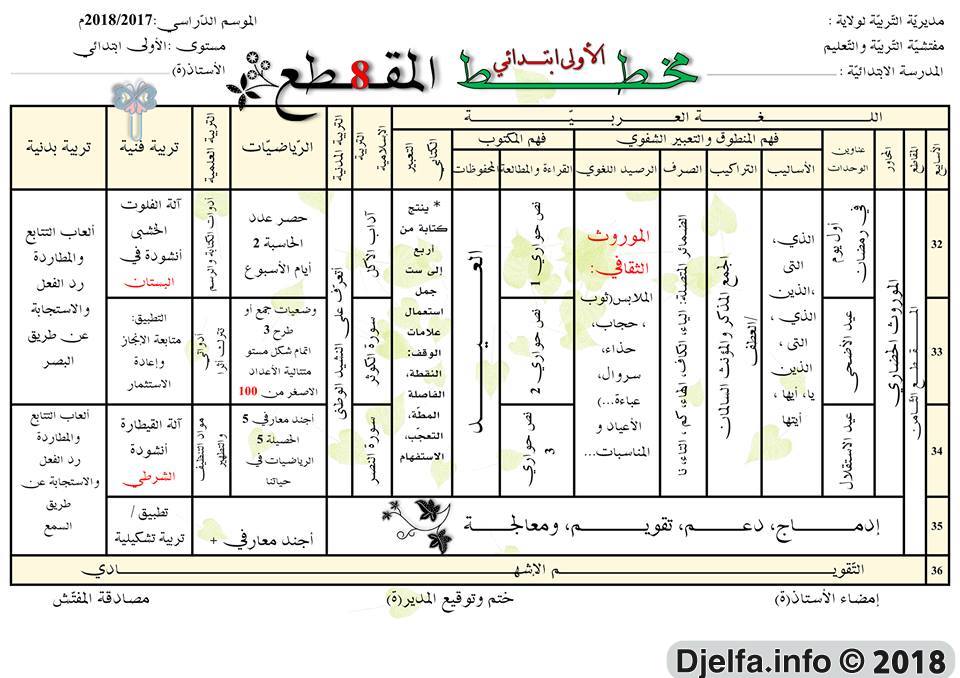 مديريّة التّربيّة لولاية :
مفتشيّة التّربيّة والتّعليم
المدرسة الابتدائيّة :
مخطط
الأولى ابتدائي
المقطع 8
الموسم الدّراسي :2018/2017م
مستوى :الأولى ابتدائي
الأستاذ(ة)
الأسابيع
المقاطع
المحاور
اللـــغـــة العـــربـــيّـــة
عناوين الوحدات
فهم المنطوق والتعبير الشفوي
الأساليب
التراكيب
الصرف
الرصيد اللغوي
فهم المكتوب
القراءة والمطالعة
المحفوظات
التعبير الكتابي
التربية الإسلامية
التربية المدنية
الرّياضيّات
التربية العلمية
تربية فنية
تربية بدنية
32
33
34
35
36
المقطع الثامن
الموروث الحضاري
أول يوم في رمضان
عيد الأضحى
عيد الاستقلال
الذي،
التى
،الذين،
الذي ،
التى ،
الذين
يا، أيها ،
أيتها
الجمع المذكر والمؤنث السالمان
/العطف
الضمائر المتصلة: الياء، الكاف، الهاء، كم، التاء، نا
الموروث
الثقافي:
الملابس(ثوب
، حجاب،
حذاء،
سروال،
عباءة...)
الأعياد و
المناسبات...
نص حواري 1
نص حواري 2
نص حواري 3
العـــيـــد
* ينتج
كتابة من
أربع
إلى ست
جمل
استعمال
علامات
الوقف:
النقطة،
الفاصلة
المطّة،
التعجب،
الاستفهام
آداب الأكل
سورة الكوثر
سورة النصر
أتعرّف على النشيد الوطني
حصر عدد
الحاسبة 2
أيام الأسبوع
وضعيات جمع أو
طرح 3
اتمام شكل مستو
متتالية الأعداد
الاصغر من 100
أجند معارفي 5
الحصيلة 5
الرياضيات في
حياتنا
أدوات الكتابة والرسم
أدواتي تترك أثرا
مواد التنظيف والتطهير
آلة الفلوت
الخشبي
أنشودة في
البستان
التطبيق:
متابعة الإنجاز
وإعادة
الاستثمار
آلة القيطارة
أنشودة
الشرطي
تطبيق /
تربية تشكيلية
ألعاب التتابع
والمطاردة
رد الفعل
والاستجابة
عن طريق
البصر
ألعاب التتابع
والمطاردة
رد الفعل
والاستجابة عن
طريق
السمع
إدمـــاج، دعـــم، تقويـــم، ومعالجـــة
أجند معارفي +
التّقويـــم الإشهـــادي
إمضاء الأستاذ(ة)
ختم وتوقيع المدير(ة)
مصادقة المفتّش
Djelfa.info © 2018